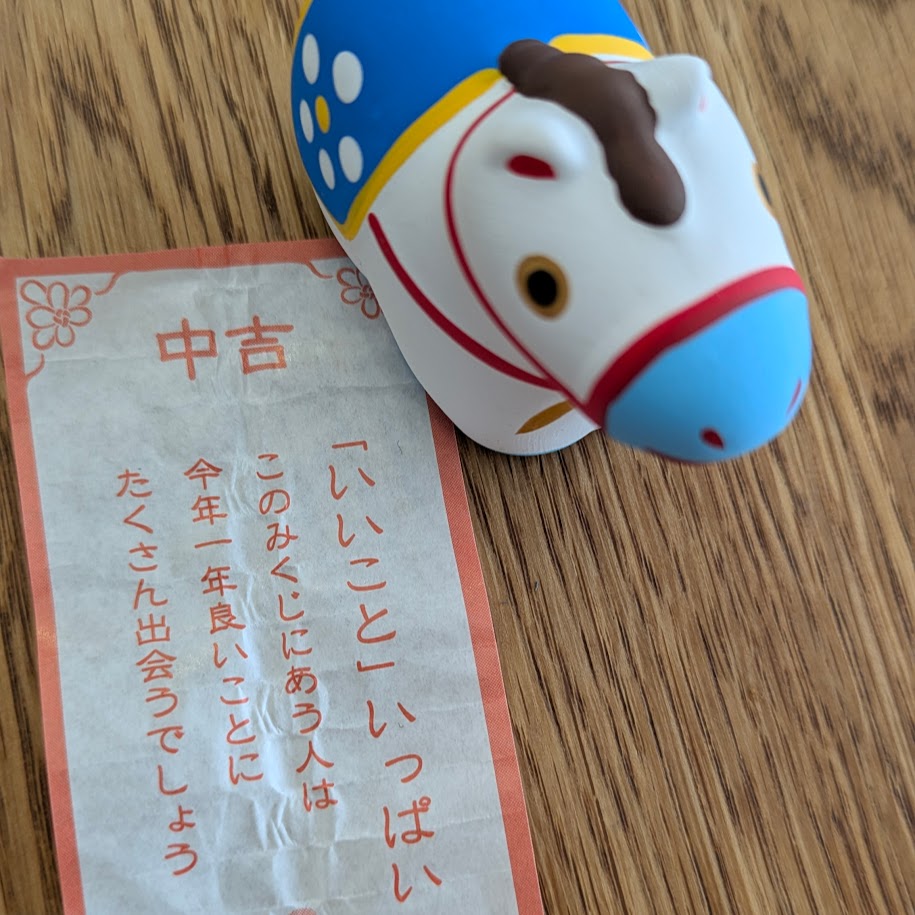 中吉
「いいこと」いっぱい
このみくじにあう人は
今年一年良いことに
たくさん出会うでしょう